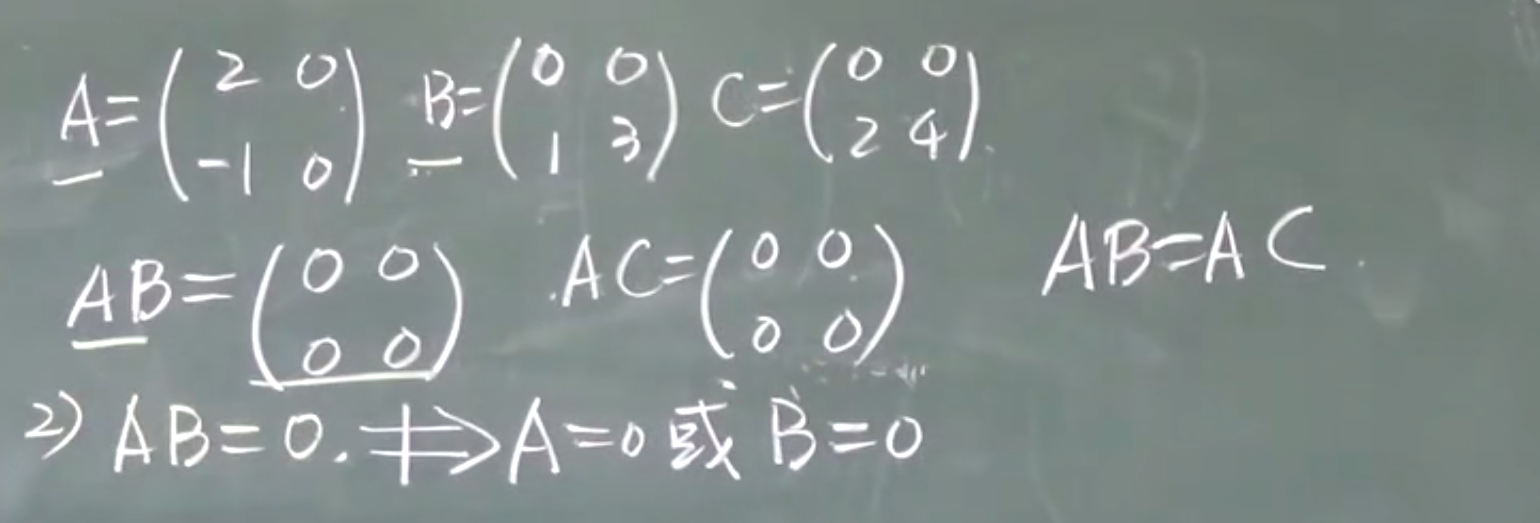 A=(2 0 -1 0) B=(0 0 1 3) C=(0 0 2 4).
AB=(0 0 0 0) AC=(0 0 0 0) AB=AC.
2) AB=0. ⇏ A=0 或 B=0